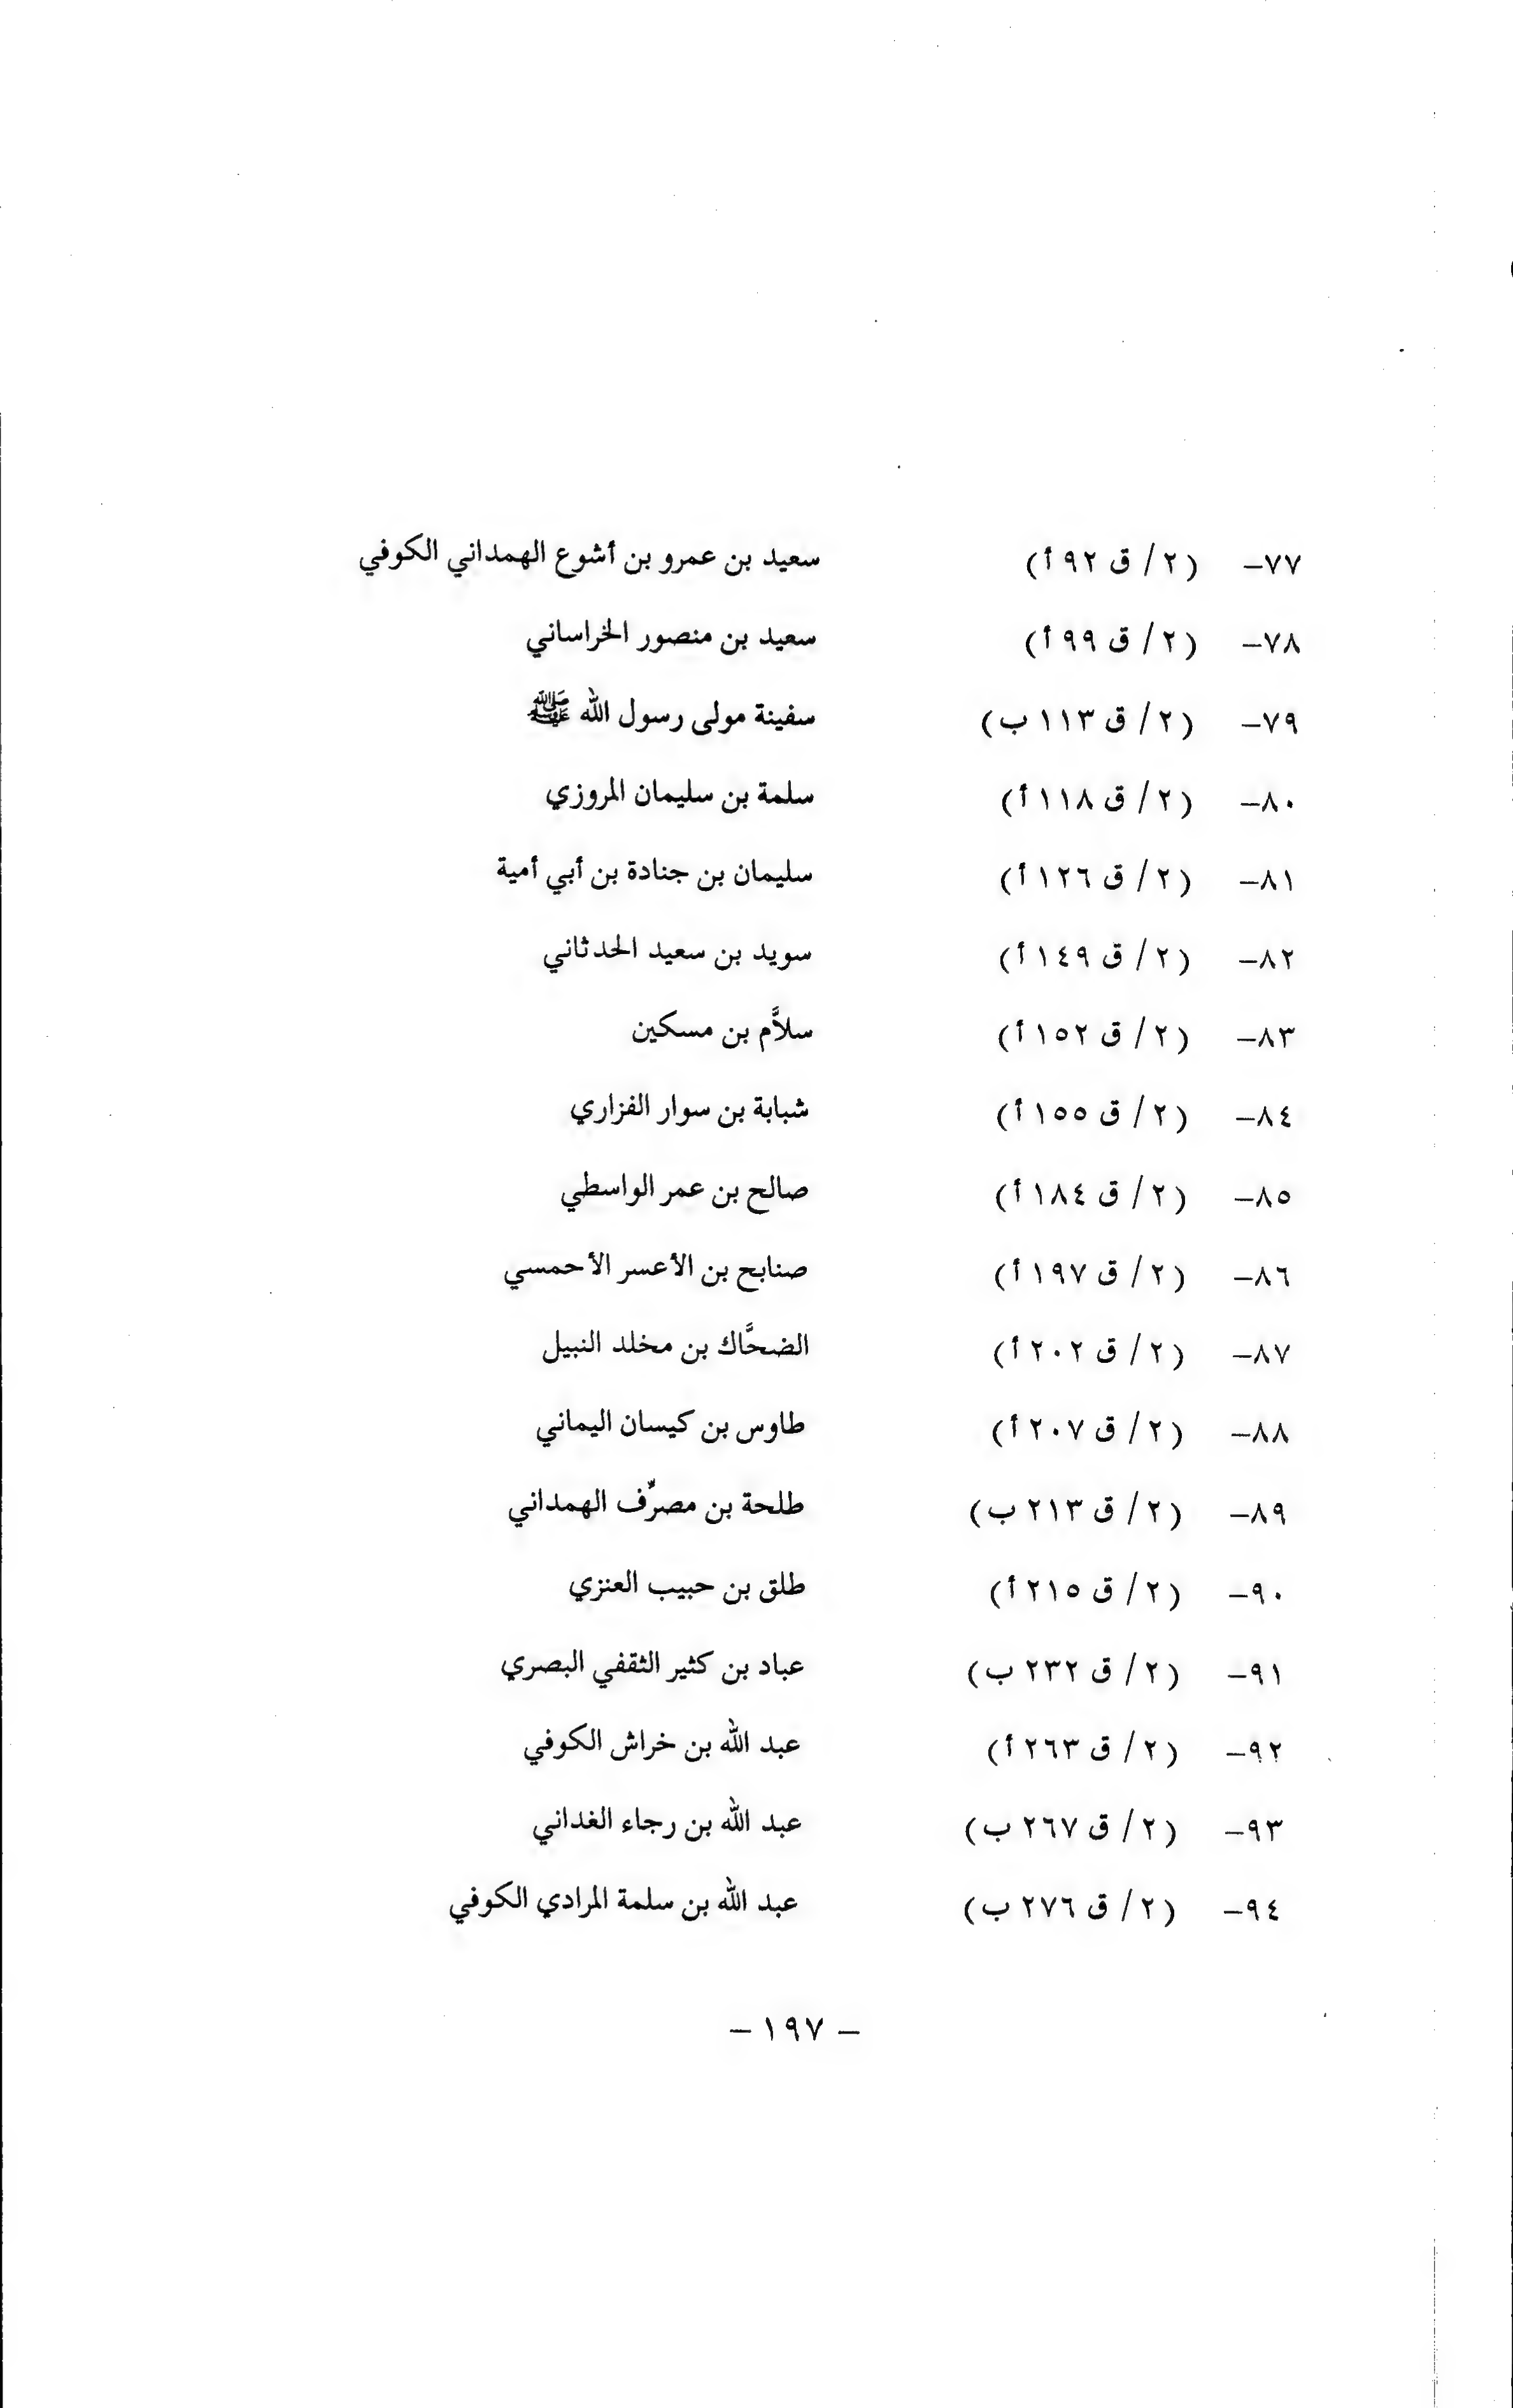 ٧٧- (٢/ ق ٩٢ أ) سعيد بن عمرو بن أشوع الهمداني الكوفي
٧٨- (٢/ ق ٩٩ أ) سعيد بن منصور الخراساني
٧٩- (٢/ ق ١١٣ ب) سفينة مولى رسول الله ﷺ
٨٠- (٢/ ق ١١٨ أ) سلمة بن سليمان المروزي
٨١- (٢/ ق ١٢٦ أ) سليمان بن جنادة بن أبي أمية
٨٢- (٢/ ق ١٤٩ أ) سويد بن سعيد الحدثاني
٨٣- (٢/ ق ١٥٢ أ) سلاَّم بن مسكين
٨٤- (٢/ ق ١٥٥ أ) شبابة بن سوار الفزاري
٨٥- (٢/ ق ١٨٤ أ) صالح بن عمر الواسطي
٨٦- (٢/ ق ١٩٧ أ) صنابح بن الأعسر الأحمسي
٨٧- (٢/ ق ٢٠٢ أ) الضحَّاك بن مخلد النبيل
٨٨- (٢/ ق ٢٠٧ أ) طاوس بن كيسان اليماني
٨٩- (٢/ ق ٢١٣ ب) طلحة بن مصرِّف الهمداني
٩٠- (٢/ ق ٢١٥ أ) طلق بن حبيب العنزي
٩١- (٢/ ق ٢٣٢ ب) عباد بن كثير الثقفي البصري
٩٢- (٢/ ق ٢٦٣ أ) عبد الله بن خراش الكوفي
٩٣- (٢/ ق ٢٦٧ ب) عبد الله بن رجاء الغداني
٩٤- (٢/ ق ٢٧٦ ب) عبد الله بن سلمة المرادي الكوفي
- ١٩٧ -